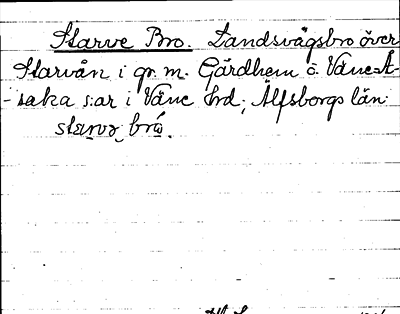 Starve Bro. Landsvägsbro över
Starvån i gr. m. Gärdhem o. Väne-Å-
-saka s:ar i Väne hrd; Älfsborgs län.
starvə brω̄.